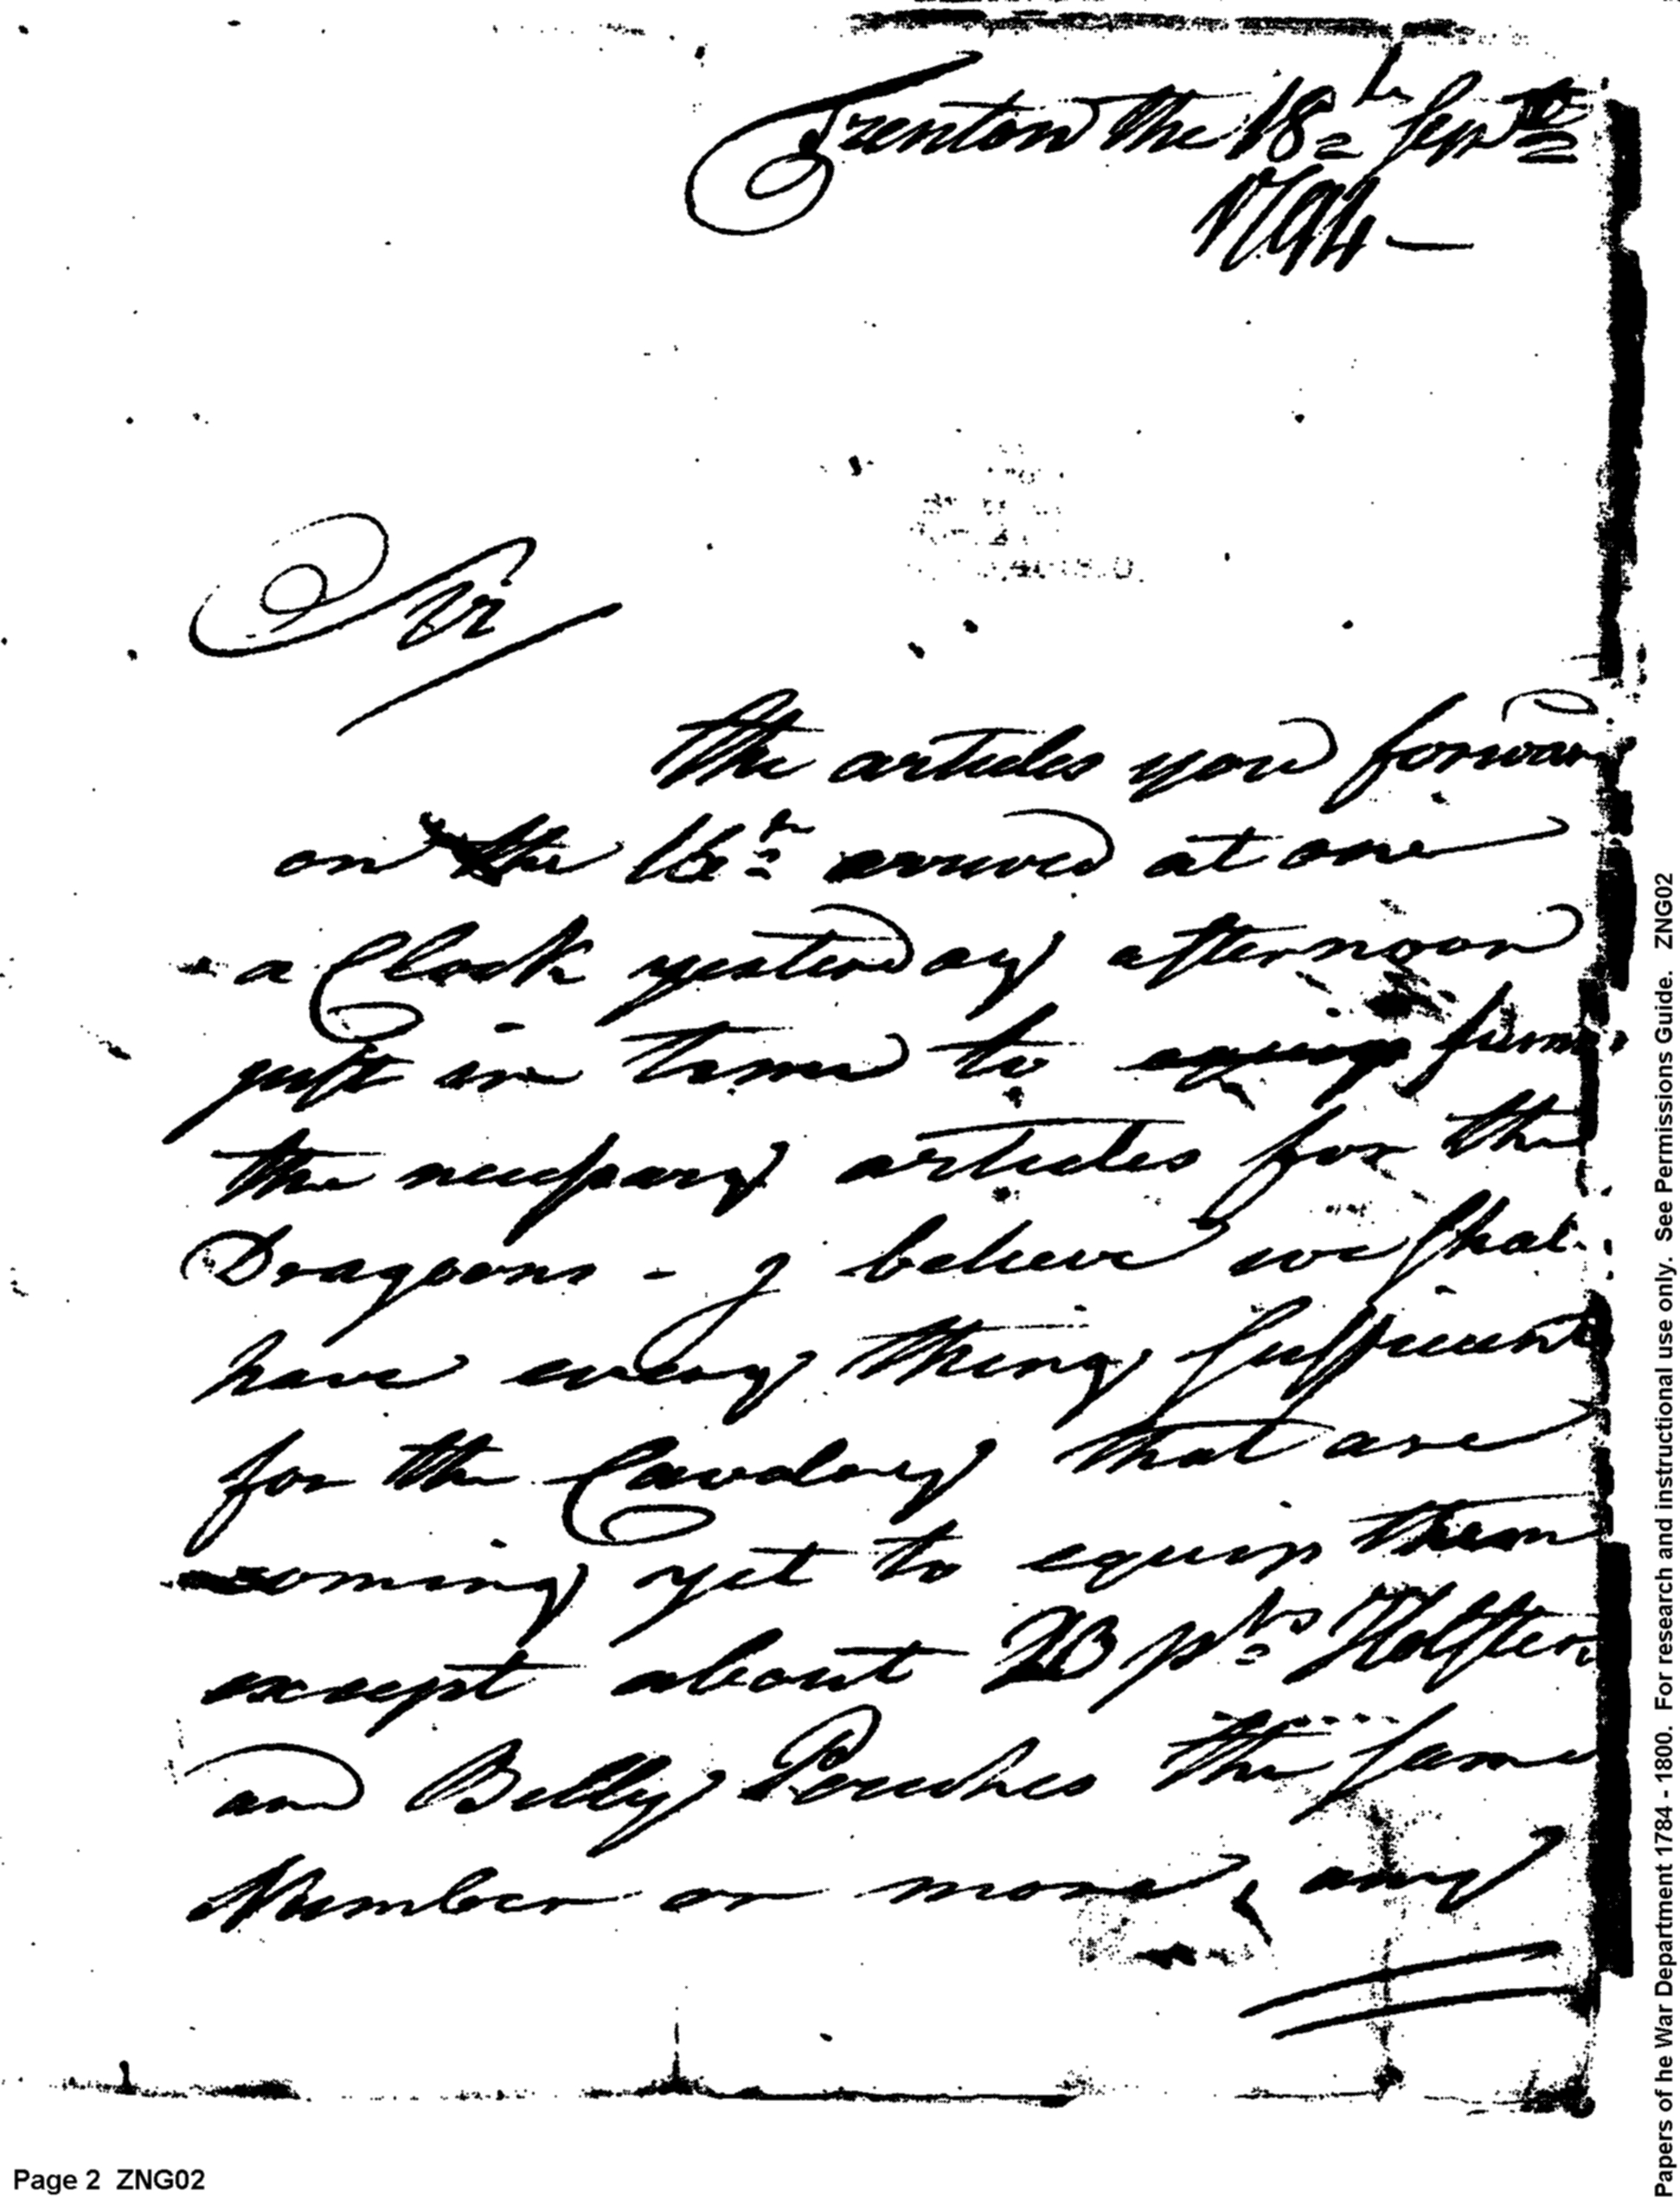 Trenton the 18th Sept
1794 –
Sir
the articles you forwar
on the 16th arrived at one
a Clock yesterday afternoon
just in time to equip from
the necessary articles for the
Dragoons - I believe we shal
have every thing sufficient
for the Cavalry that are
coming yet to equip them
except about 20 prs Holsters
and Belly Pouches the same
Number or more, any
Page 2 ZNG02
Papers of he War Department 1784 - 1800. For research and instructional use only. See Permissions Guide. ZNG02